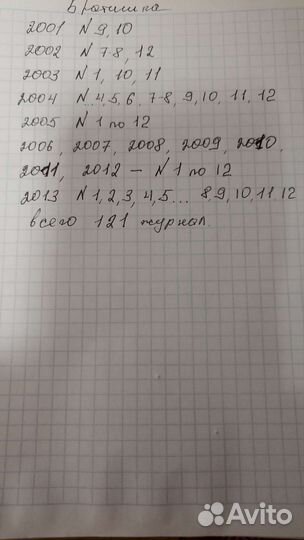 Братишка
2001 N 9, 10
2002 N 7-8, 12
2003 N 1, 10, 11
2004 N 4, 5, 6, 7-8, 9, 10, 11, 12
2005 N 1 по 12
2006, 2007, 2008, 2009, 2010,
2011, 2012 – N 1 по 12
2013 N 1, 2, 3, 4, 5... 8, 9, 10, 11, 12
всего 121 журнал.
Avito